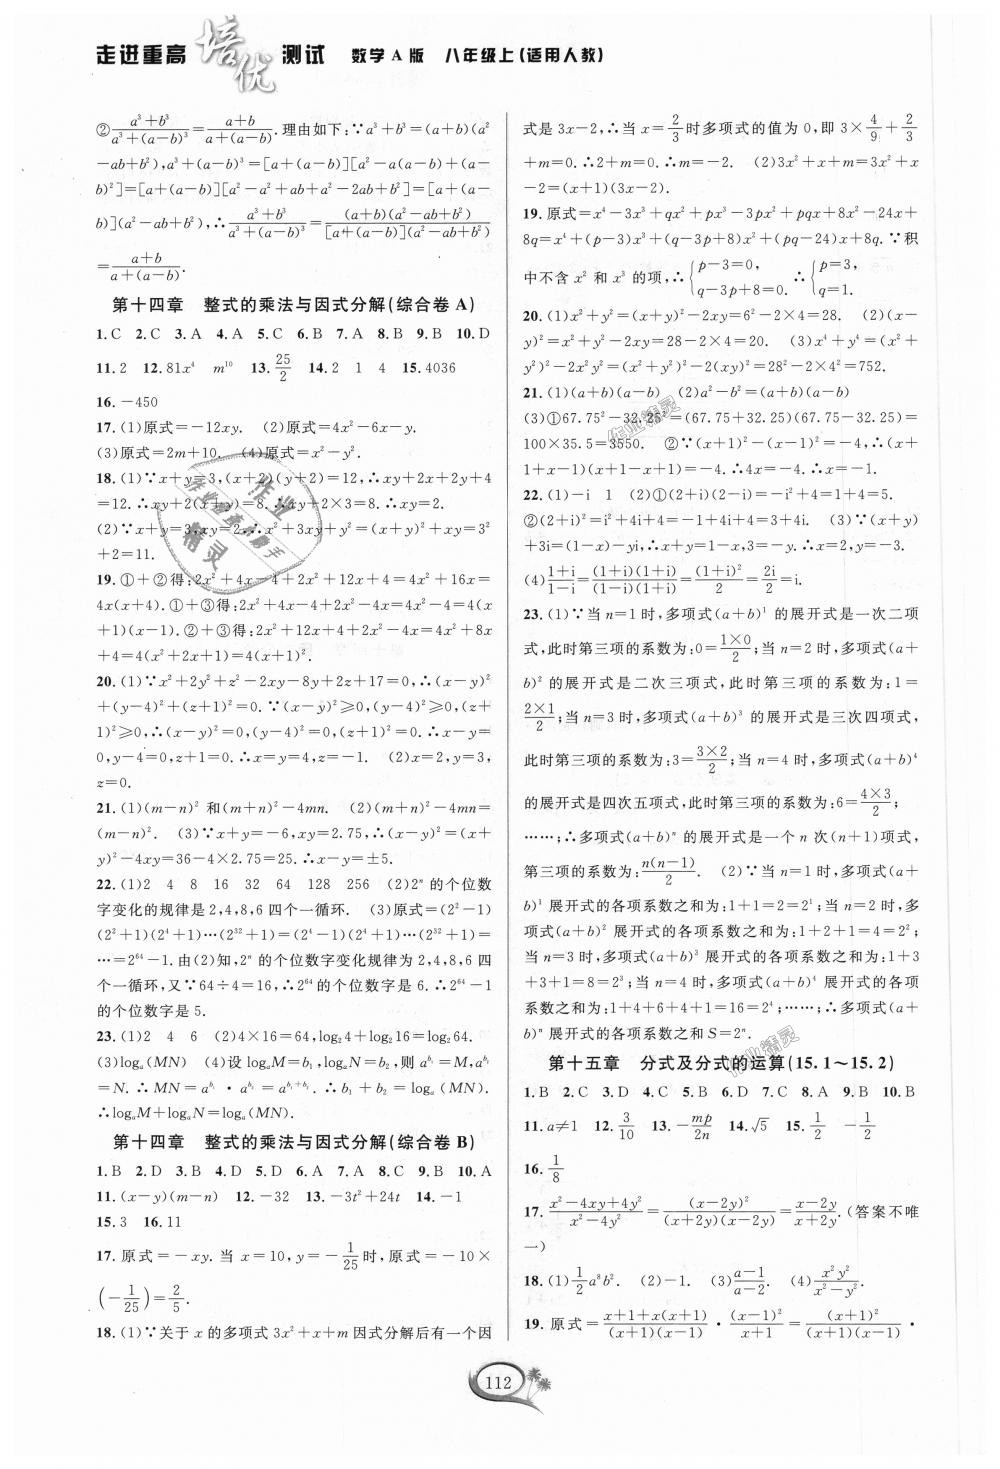 走进重高 培优 测试 数学 A 版 八年级上(适用人教)
②(a³+b³)/(a³+(a-b)³)=(a+b)/(a+(a-b)).理由如下:∵a³+b³=(a+b)(a²
-ab+b²),a³+(a-b)³=[a+(a-b)][a²-a(a-b)+(a-
b)²]=[a+(a-b)][a²-a²+ab+a²-2ab+b²]=[a+(a-
b)](a²-ab+b²),∴(a³+b³)/(a³+(a-b)³)=((a+b)(a²-ab+b²))/([a+(a-b)](a²-ab+b²))
=(a+b)/(a+(a-b)).
第十四章 整式的乘法与因式分解(综合卷 A)
1.C 2.C 3.A 4.A 5.C 6.B 7.A 8.B 9.B 10.D
11.2 12.81x⁴ m¹⁰ 13.25/2 14.2 1 4 15.4036
16.-450
17.(1)原式=-12xy. (2)原式=4x²-6x-y.
(3)原式=2m+10. (4)原式=x²-y².
18.(1)∵x+y=3,(x+2)(y+2)=12,∴xy+2x+2y+4
=12.∴xy+2(x+y)=8.∴xy+2×3=8.∴xy=2.
(2)∵x+y=3,xy=2,∴x²+3xy+y²=(x+y)²+xy=3²
+2=11.
19.①+②得:2x²+4x-4+2x²+12x+4=4x²+16x=
4x(x+4).①+③得:2x²+4x-4+2x²-4x=4x²-4=4(x
+1)(x-1).②+③得:2x²+12x+4+2x²-4x=4x²+8x
+4=4(x²+2x+1)=4(x+1)².
20.(1)∵x²+2y²+z²-2xy-8y+2z+17=0,∴(x-y)²
+(y-4)²+(z+1)²=0.∵(x-y)²≥0,(y-4)²≥0,(z+
1)²≥0,∴(x-y)²=0,(y-4)²=0,(z+1)²=0.∴x-y=
0,y-4=0,z+1=0.∴x=y=4,z=-1. (2)x=2,y=3,
z=0.
21.(1)(m-n)² 和(m+n)²-4mn. (2)(m+n)²-4mn=
(m-n)². (3)∵x+y=-6,xy=2.75,∴(x-y)²=(x+
y)²-4xy=36-4×2.75=25.∴x-y=±5.
22.(1)2 4 8 16 32 64 128 256 (2)2ⁿ的个位数
字变化的规律是 2,4,8,6 四个一循环. (3)原式=(2²-1)
(2²+1)(2⁴+1)…(2³²+1)=(2⁴-1)(2⁴+1)…(2³²+1)
=…=2⁶⁴-1.由(2)知,2ⁿ 的个位数字变化规律为 2,4,8,6 四
个一循环,又∵64÷4=16,∴2⁶⁴的个位数字是 6.∴2⁶⁴-1
的个位数字是 5.
23.(1)2 4 6 (2)4×16=64,log₂4+log₂16=log₂64.
(3)logₐ(MN) (4)设 logₐM=b₁,logₐN=b₂,则 a^b₁=M,a^b₂
=N.∴MN=a^b₁·a^b₂=a^(b₁+b₂).∴b₁+b₂=logₐ(MN).
∴logₐM+logₐN=logₐ(MN).
第十四章 整式的乘法与因式分解(综合卷 B)
1.B 2.D 3.B 4.D 5.D 6.A 7.A 8.C 9.B 10.A
11.(x-y)(m-n) 12.-32 13.-3t²+24t 14.-1
15.3 16.11
17.原式=-xy.当 x=10,y=-1/25时,原式=-10×
(-1/25)=2/5.
18.(1)∵关于 x 的多项式 3x²+x+m 因式分解后有一个因
式是 3x-2,∴当 x=2/3时多项式的值为 0,即 3×4/9+2/3
+m=0.∴2+m=0.∴m=-2. (2)3x²+x+m=3x²+x
-2=(x+1)(3x-2).
19.原式=x⁴-3x³+qx²+px³-3px²+pqx+8x²-24x+
8q=x⁴+(p-3)x³+(q-3p+8)x²+(pq-24)x+8q.∵积
中不含 x² 和 x³ 的项,∴{p-3=0, q-3p+8=0. ∴{p=3, q=1.
20.(1)x²+y²=(x+y)²-2xy=6²-2×4=28. (2)(x-
y)²=x²+y²-2xy=28-2×4=20. (3)x⁴+y⁴=(x²+
y²)²-2x²y²=(x²+y²)²-2(xy)²=28²-2×4²=752.
21.(1)(a+b)(a-b) (2)a²-b²=(a+b)(a-b)
(3)①67.75²-32.25²=(67.75+32.25)(67.75-32.25)=
100×35.5=3550. ②∵(x+1)²-(x-1)²=-4,∴(x+
1+x-1)(x+1-x+1)=-4.∴4x=-4.∴x=-1.
22.(1)-i 1 (2)①(2+i)(2-i)=-i²+4=1+4=5.
②(2+i)²=i²+4i+4=-1+4i+4=3+4i. (3)∵(x+y)
+3i=(1-x)-yi,∴x+y=1-x,3=-y.∴x=2,y=-3.
(4)(1+i)/(1-i)=((1+i)(1+i))/((1-i)(1+i))=(1+i)²/2=2i/2=i.
23.(1)∵当 n=1 时,多项式(a+b)¹ 的展开式是一次二项
式,此时第三项的系数为:0=(1×0)/2;当 n=2 时,多项式(a+
b)² 的展开式是二次三项式,此时第三项的系数为:1=
(2×1)/2;当 n=3 时,多项式(a+b)³ 的展开式是三次四项式,
此时第三项的系数为:3=(3×2)/2;当 n=4 时,多项式(a+b)⁴
的展开式是四次五项式,此时第三项的系数为:6=(4×3)/2;
……;∴多项式(a+b)ⁿ 的展开式是一个 n 次(n+1)项式,
第三项的系数为:n(n-1)/2. (2)∵当 n=1 时,多项式(a+
b)¹ 展开式的各项系数之和为:1+1=2=2¹;当 n=2 时,多
项式(a+b)² 展开式的各项系数之和为:1+2+1=4=2²;
当 n=3 时,多项式(a+b)³ 展开式的各项系数之和为:1+3
+3+1=8=2³;当 n=4 时,多项式(a+b)⁴ 展开式的各项
系数之和为:1+4+6+4+1=16=2⁴;……;∴多项式(a+
b)ⁿ 展开式的各项系数之和 S=2ⁿ.
第十五章 分式及分式的运算(15.1～15.2)
1.B 2.C 3.D 4.C 5.B 6.D 7.C 8.A 9.B 10.B
11.a≠1 12.3/10 13.-mp/2n 14.√5 15.1/2 -1/2
16.1/8
17.(x²-4xy+4y²)/(x²-4y²)=(x-2y)²/((x+2y)(x-2y))=(x-2y)/(x+2y).(答案不唯
一)
18.(1)1/2a⁸b². (2)-1. (3)(a-1)/(a-2). (4)x²y²/(x²-y²).
19.原式=(x+1+x(x+1))/((x+1)(x-1))·(x-1)²/(x+1)=(x+1)²/((x+1)(x-1))·
112